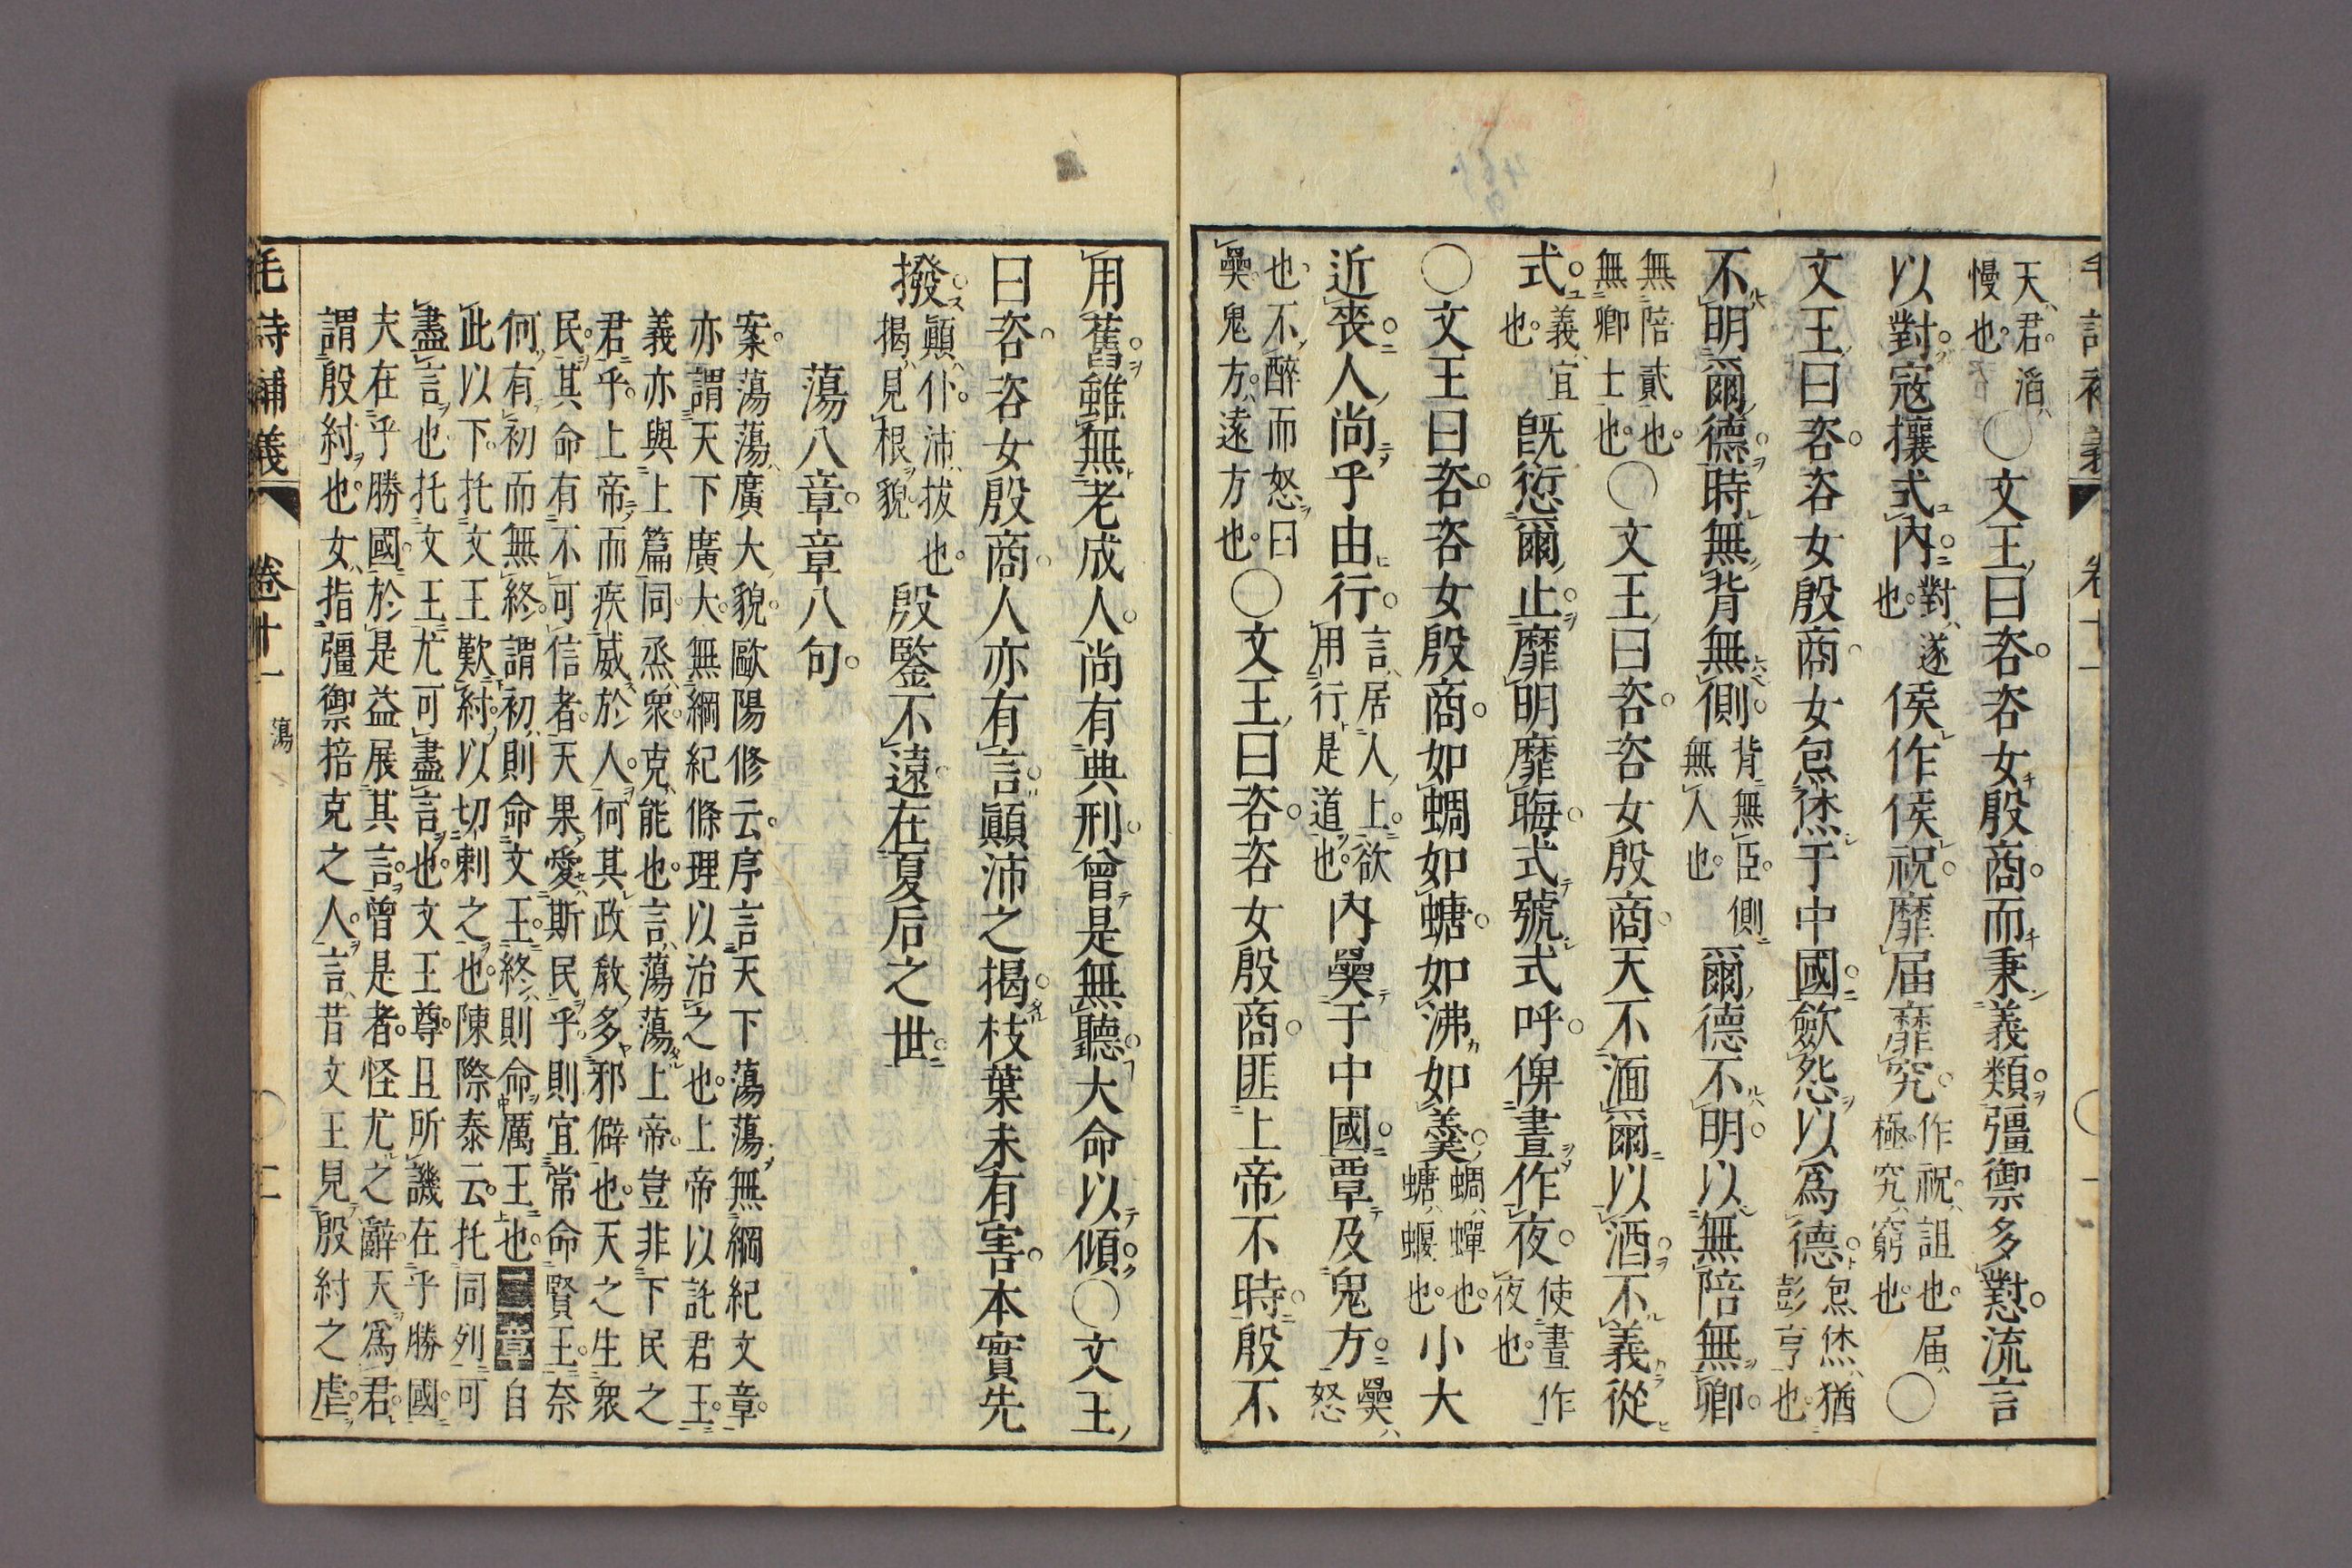 天、君。滔、慢也。○文王曰咨。咨女殷商。而秉義類。彊禦多懟。流言
以對。寇攘式內。對、遂也。侯作侯祝。靡屆靡究。作祝、詛也。屆、極。究、窮也。○
文王曰咨。咨女殷商。女炰烋于中國。歛怨以爲德。炰烋、猶彭亨也。
不明爾德。時無背無側。背無臣。側無人也。爾德不明。以無陪無卿。
無陪貳也。無卿士也。○文王曰咨。咨女殷商。天不湎爾以酒。不義從
式。義、宜也。旣愆爾止。靡明靡晦。式號式呼。俾晝作夜。使晝作夜也。
○文王曰咨。咨女殷商。如蜩如螗。如沸如羹。蜩、蟬也。螗、蝘也。小大
近喪。人尚乎由行。言、居人上。欲用行是道也。內奰于中國。覃及鬼方。奰、怒
也。不醉而怒曰奰。鬼方、遠方也。○文王曰咨。咨女殷商。匪上帝不時。殷不
用舊。雖無老成人。尚有典刑。曾是無聽。大命以傾。○文王
曰咨。咨女殷商。人亦有言。顚沛之揭。枝葉未有害。本實先
撥。顚、仆。沛、拔也。揭、見根貌。殷鑒不遠。在夏后之世。
蕩八章。章八句。
案。蕩蕩、廣大貌。歐陽修云。序言天下蕩蕩、無綱紀文章。
亦謂天下廣大。無綱紀條理以治之也。上帝以託君王。
義亦與上篇同。烝、衆。克、能也。言、蕩蕩上帝。豈非下民之
君乎。上帝而疾威於人。何其政敎多邪僻也。天之生衆
民。其命有不可信者。天果愛斯民乎。則宜常命賢王。奈
何有初而無終。謂初、則命文王。終、則命厲王也。二章自
此以下。托文王歎紂。以切剌之也。陳際泰云。托同列可
盡言也。托文王尤可盡言也。文王尊。且所譏在乎勝國。
夫在乎勝國。於是益展其言。曾是者。怪尤之辭。天爲君。
謂殷紂也。女、指彊禦掊克之人。言、昔文王見殷紂之虐。
毛詩補義 卷十一 蕩